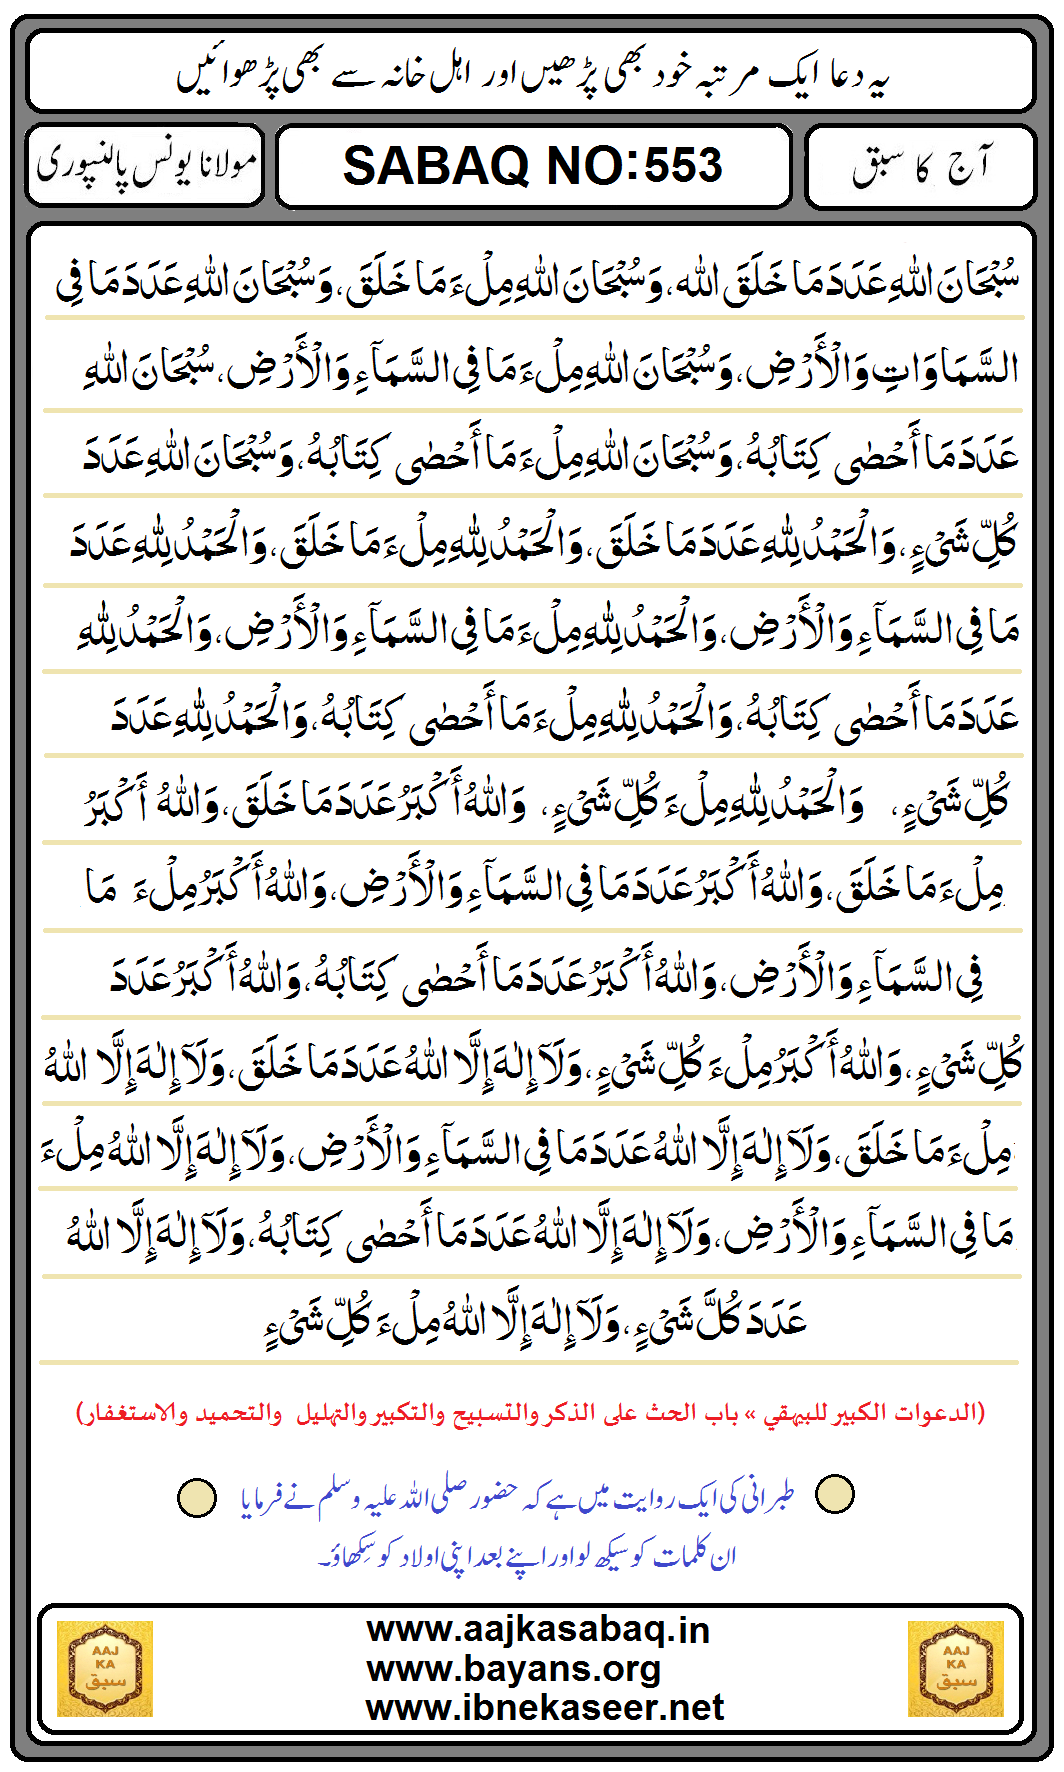 یہ دعا ایک مرتبہ خود بھی پڑھیں اور اہل خانہ سے بھی پڑھوائیں
آج کا سبق
SABAQ NO:553
مولانا یونس پالنپوری
سُبْحَانَ اللهِ عَدَدَ مَا خَلَقَ الله، وَسُبْحَانَ اللهِ مِلْءَ مَا خَلَقَ، وَسُبْحَانَ اللهِ عَدَدَ مَا فِي
السَّمَاوَاتِ وَالْأَرْضِ، وَسُبْحَانَ اللهِ مِلْءَ مَا فِي السَّمَآءِ وَالْأَرْضِ، سُبْحَانَ اللهِ
عَدَدَ مَا أَحْصٰى كِتَابُهُ، وَسُبْحَانَ اللهِ مِلْءَ مَا أَحْصٰى كِتَابُهُ، وَسُبْحَانَ اللهِ عَدَدَ
كُلِّ شَيْءٍ، وَالْحَمْدُ لِلّٰهِ عَدَدَ مَا خَلَقَ، وَالْحَمْدُ لِلّٰهِ مِلْءَ مَا خَلَقَ، وَالْحَمْدُ لِلّٰهِ عَدَدَ
مَا فِي السَّمَآءِ وَالْأَرْضِ، وَالْحَمْدُ لِلّٰهِ مِلْءَ مَا فِي السَّمَآءِ وَالْأَرْضِ، وَالْحَمْدُ لِلّٰهِ
عَدَدَ مَا أَحْصٰى كِتَابُهُ، وَالْحَمْدُ لِلّٰهِ مِلْءَ مَا أَحْصٰى كِتَابُهُ، وَالْحَمْدُ لِلّٰهِ عَدَدَ
كُلِّ شَيْءٍ، وَالْحَمْدُ لِلّٰهِ مِلْءَ كُلِّ شَيْءٍ، وَاللهُ أَكْبَرُ عَدَدَ مَا خَلَقَ، وَاللهُ أَكْبَرُ
مِلْءَ مَا خَلَقَ، وَاللهُ أَكْبَرُ عَدَدَ مَا فِي السَّمَآءِ وَالْأَرْضِ، وَاللهُ أَكْبَرُ مِلْءَ مَا
فِي السَّمَآءِ وَالْأَرْضِ، وَاللهُ أَكْبَرُ عَدَدَ مَا أَحْصٰى كِتَابُهُ، وَاللهُ أَكْبَرُ عَدَدَ
كُلِّ شَيْءٍ، وَاللهُ أَكْبَرُ مِلْءَ كُلِّ شَيْءٍ، وَلَآ إِلٰهَ إِلَّا اللهُ عَدَدَ مَا خَلَقَ، وَلَآ إِلٰهَ إِلَّا اللهُ
مِلْءَ مَا خَلَقَ، وَلَآ إِلٰهَ إِلَّا اللهُ عَدَدَ مَا فِي السَّمَآءِ وَالْأَرْضِ، وَلَآ إِلٰهَ إِلَّا اللهُ مِلْءَ
مَا فِي السَّمَآءِ وَالْأَرْضِ، وَلَآ إِلٰهَ إِلَّا اللهُ عَدَدَ مَا أَحْصٰى كِتَابُهُ، وَلَآ إِلٰهَ إِلَّا اللهُ
عَدَدَ كُلَّ شَيْءٍ، وَلَآ إِلٰهَ إِلَّا اللهُ مِلْءَ كُلِّ شَيْءٍ
(الدعوات الكبير للبيهقي » باب الحث على الذكر والتسبيح والتكبير والتهليل والتحميد والاستغفار)
طبرانی کی ایک روایت میں ہے کہ حضور صلی اللہ علیہ وسلم نے فرمایا
ان کلمات کو سیکھ لو اور اپنے بعد اپنی اولاد کو سِکھاؤ۔
AAJ
KA
سبق
www.aajkasabaq.in
www.bayans.org
www.ibnekaseer.net
AAJ
KA
سبق